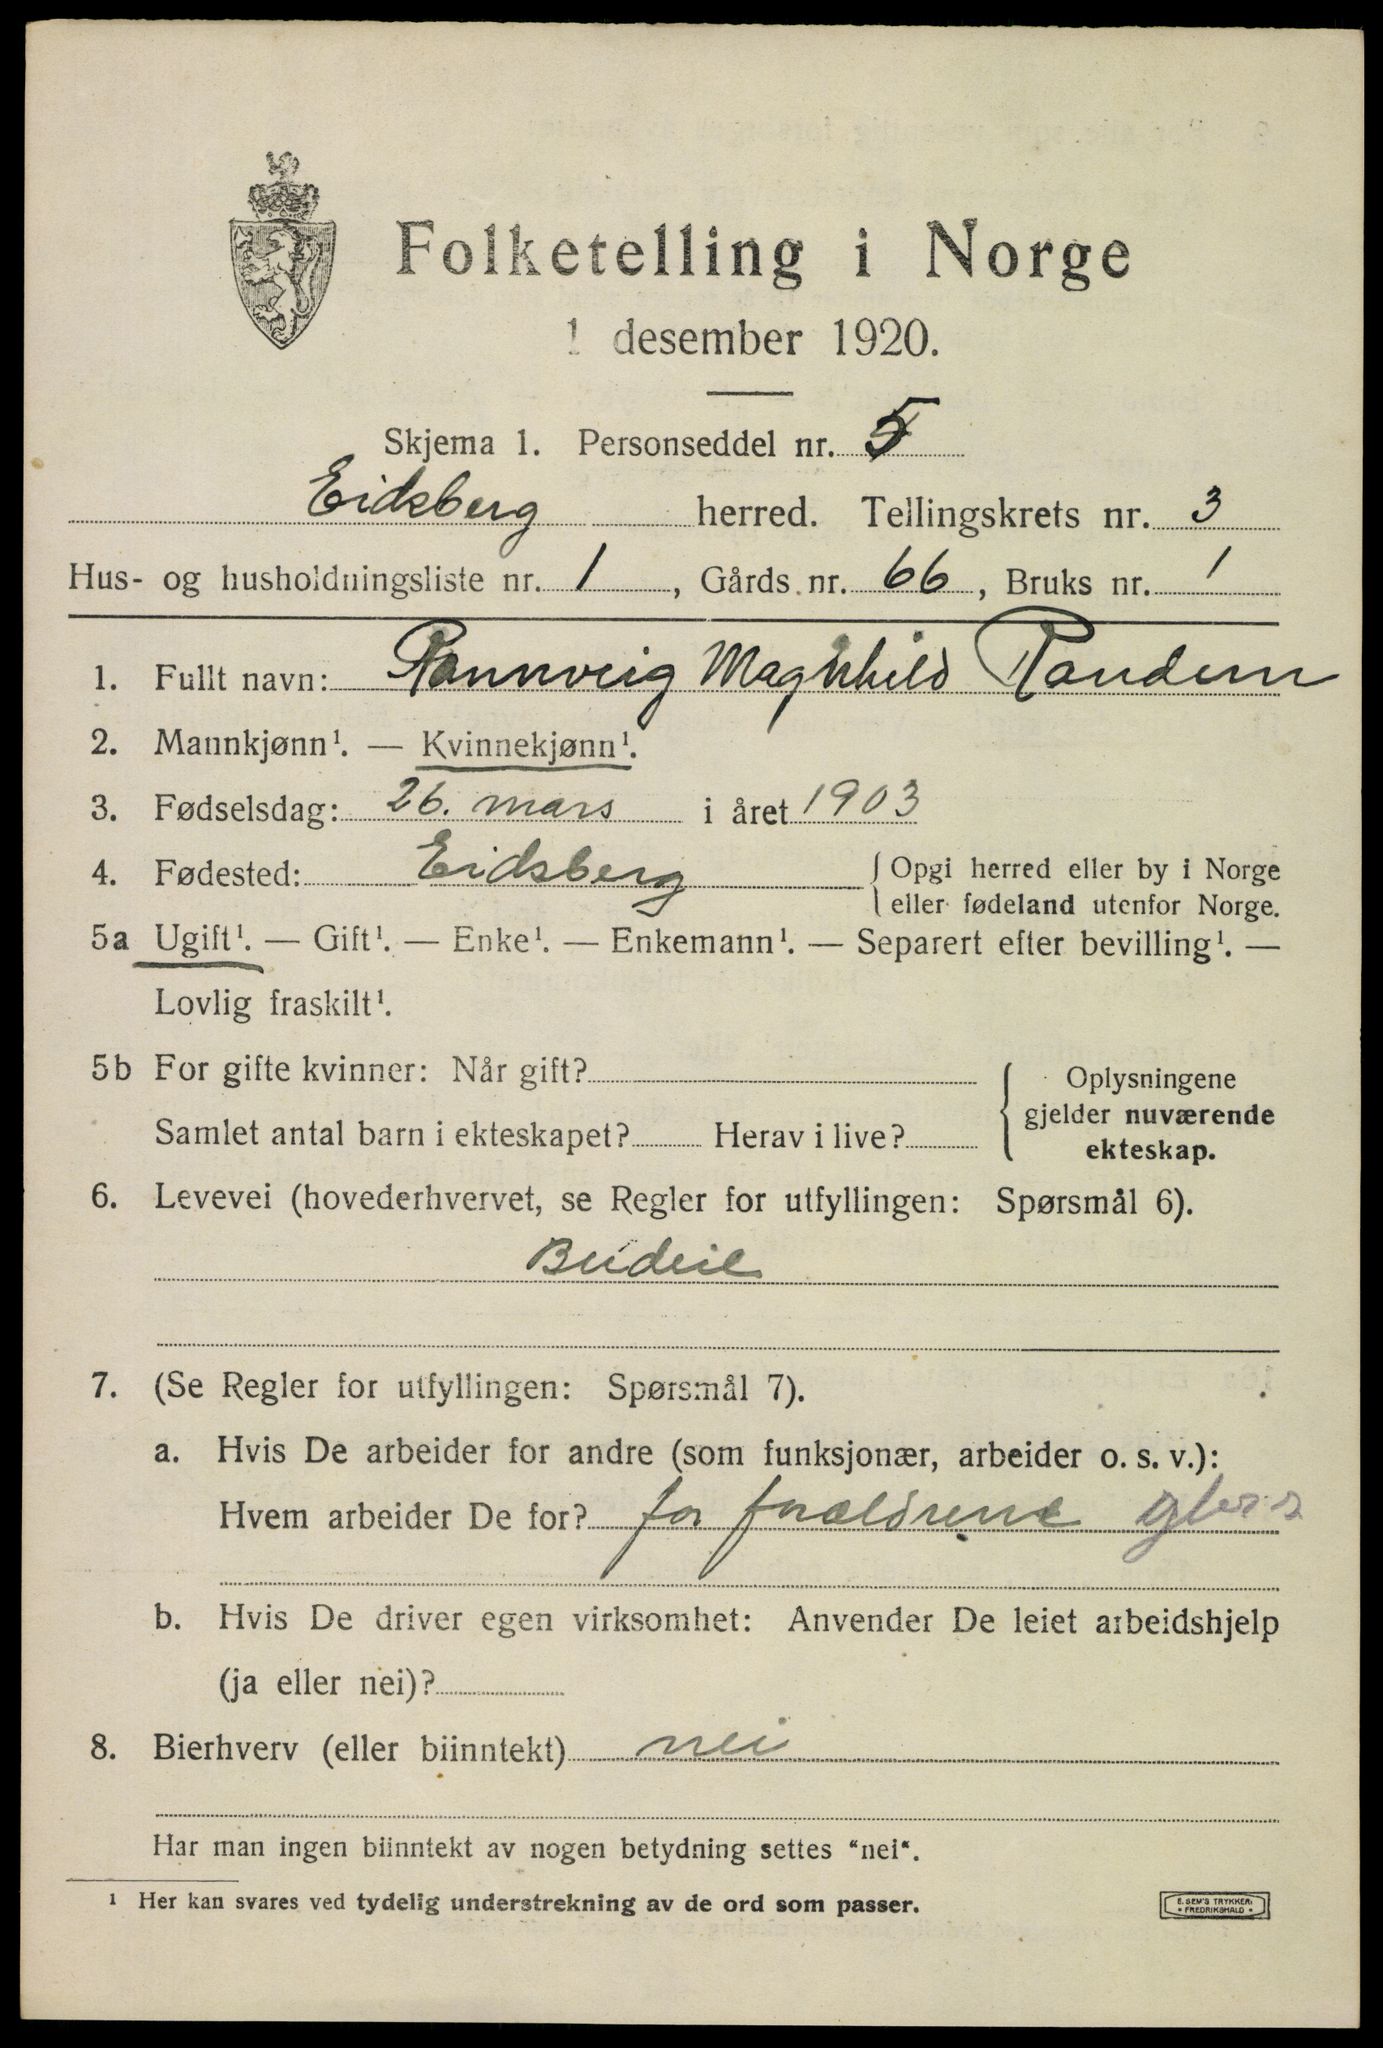 Folketelling i Norge
1 desember 1920.
Skjema 1. Personseddel nr. 5
Eidsberg herred. Tellingskrets nr. 3
Hus- og husholdningsliste nr. 1, Gårds nr. 66, Bruks nr. 1
1. Fullt navn: Rannveig Maghhild Randem
2. Mannkjønn¹. — Kvinnekjønn¹.
3. Fødselsdag: 26. mars i året 1903
4. Fødested: Eidsberg { Opgi herred eller by i Norge
eller fødeland utenfor Norge.
5a Ugift¹. — Gift¹. — Enke¹. — Enkemann¹. — Separert efter bevilling¹. —
Lovlig fraskilt¹.
5b For gifte kvinner: Når gift? { Oplysningene
gjelder nuværende
Samlet antal barn i ekteskapet? Herav i live?
ekteskap.
6. Levevei (hovederhvervet, se Regler for utfyllingen: Spørsmål 6).
Budeie
7. (Se Regler for utfyllingen: Spørsmål 7).
a. Hvis De arbeider for andre (som funksjonær, arbeider o. s. v.):
Hvem arbeider De for? for forældrene
b. Hvis De driver egen virksomhet: Anvender De leiet arbeidshjelp
(ja eller nei)?
8. Bierhverv (eller biinntekt) nei
Har man ingen biinntekt av nogen betydning settes "nei".
¹ Her kan svares ved tydelig understrekning av de ord som passer.
E. SEM'S TRYKKERI
FREDRIKSHALD